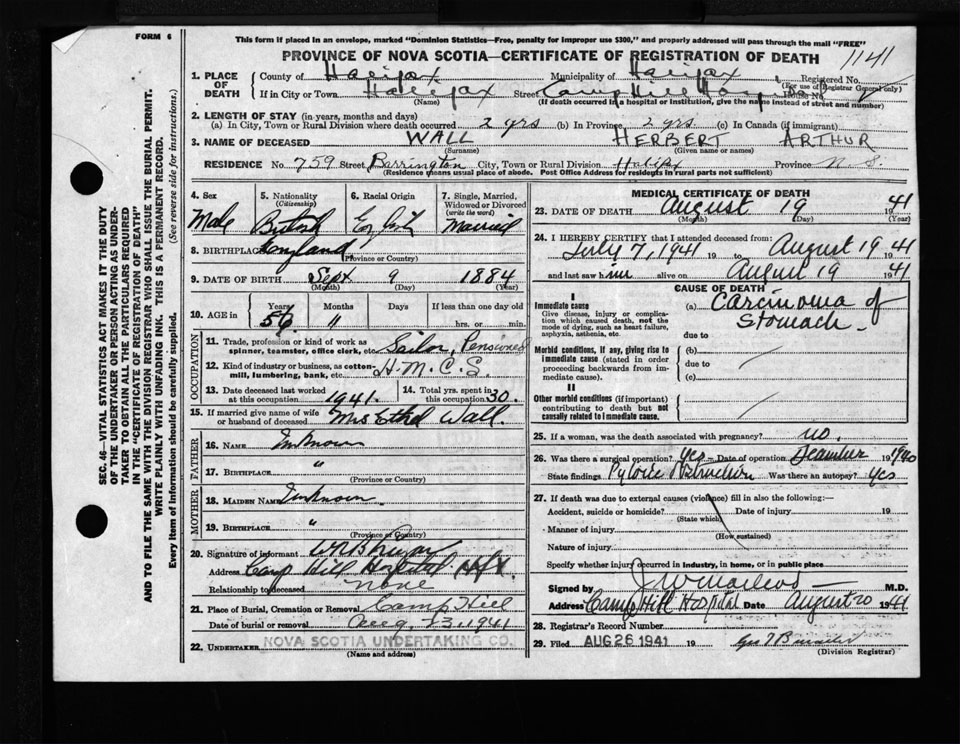 FORM 6
This form if placed in an envelope, marked "Dominion Statistics—Free, penalty for improper use $300," and properly addressed will pass through the mail "FREE"
PROVINCE OF NOVA SCOTIA—CERTIFICATE OF REGISTRATION OF DEATH 1141
1. PLACE OF DEATH County of Halifax Municipality of Halifax Registered No. (For use of Registrar General only)
If in City or Town Halifax (Name) Street Camp Hill Hospital House No.
(If death occurred in a hospital or institution, give the name instead of street and number)
2. LENGTH OF STAY (in years, months and days)
(a) In City, Town or Rural Division where death occurred 2 yrs (b) In Province 2 yrs (c) In Canada (if immigrant)
3. NAME OF DECEASED WALL (Surname) HERBERT ARTHUR (Given name or names)
RESIDENCE No. 759 Street Barrington City, Town or Rural Division Halifx Province N. S.
(Residence means usual place of abode. Post Office Address for residents in rural parts not sufficient)
4. Sex Male
5. Nationality (Citizenship) British
6. Racial Origin English
7. Single, Married, Widowed or Divorced (write the word) Married
8. BIRTHPLACE England (Province or Country)
9. DATE OF BIRTH Sept. (Month) 9 (Day) 1884 (Year)
10. AGE in Years 56 Months 11 Days If less than one day old hrs. or min.
OCCUPATION
11. Trade, profession or kind of work as spinner, teamster, office clerk, etc. Sailor, Pensioned
12. Kind of industry or business, as cotton-mill, lumbering, bank, etc. H.M.C.S.
13. Date deceased last worked at this occupation 1941. 14. Total yrs. spent in this occupation 30.
15. If married give name of wife or husband of deceased Mrs Ethel Wall.
FATHER
16. NAME Unknown
17. BIRTHPLACE " (Province or Country)
MOTHER
18. MAIDEN NAME Unknown
19. BIRTHPLACE " (Province or Country)
20. Signature of informant
Address Camp Hill Hospital Hfx.
Relationship to deceased none
21. Place of Burial, Cremation or Removal Camp Hill
Date of burial or removal Aug. 23, 1941
22. UNDERTAKER NOVA SCOTIA UNDERTAKING CO.
(Name and address)
MEDICAL CERTIFICATE OF DEATH
23. DATE OF DEATH August (Month) 19 (Day) 1941 (Year)
24. I HEREBY CERTIFY that I attended deceased from:
July 7, 1941 19 to August 19 1941
and last saw him alive on August 19 1941
CAUSE OF DEATH
I
Immediate cause
Give disease, injury or complication which caused death, not the mode of dying, such as heart failure, asphyxia, asthenia, etc.
(a) Carcinoma of Stomach.
due to
Morbid conditions, if any, giving rise to immediate cause (stated in order proceeding backwards from immediate cause).
(b)
due to
(c)
II
Other morbid conditions (if important) contributing to death but not causally related to immediate cause.
25. If a woman, was the death associated with pregnancy? no.
26. Was there a surgical operation? yes – Date of operation December 1940
State findings Pyloric Obstruction Was there an autopsy? yes
27. If death was due to external causes (violence) fill in also the following:—
Accident, suicide or homicide? (State which) Date of injury 19
Manner of injury (How sustained)
Nature of injury
Specify whether injury occurred in industry, in home, or in public place
Signed by J W MacLeod M.D.
Address Camp Hill Hospital Date August 20 1941
28. Registrar's Record Number
29. Filed AUG 26 1941 19
(Division Registrar)
SEC. 46—VITAL STATISTICS ACT MAKES IT THE DUTY
OF THE UNDERTAKER OR PERSON ACTING AS UNDER-
TAKER TO OBTAIN ALL THE PARTICULARS REQUIRED
IN THE "CERTIFICATE OF REGISTRATION OF DEATH"
AND TO FILE THE SAME WITH THE DIVISION REGISTRAR WHO SHALL ISSUE THE BURIAL PERMIT.
WRITE PLAINLY WITH UNFADING INK. THIS IS A PERMANENT RECORD.
Every item of Information should be carefully supplied. (See reverse side for instructions.)